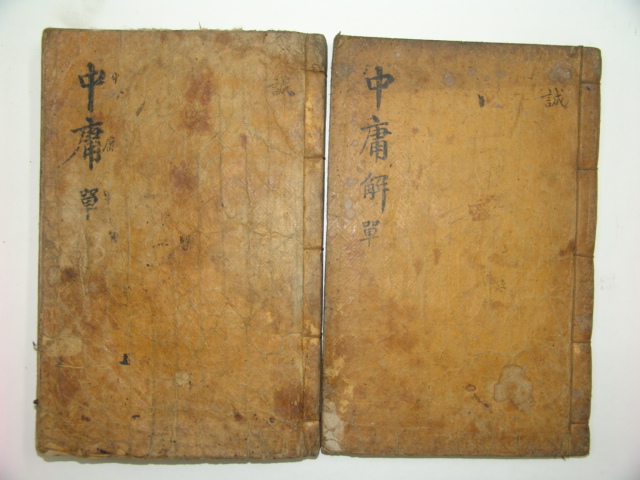 中庸 單
誠
中庸解 單
誠